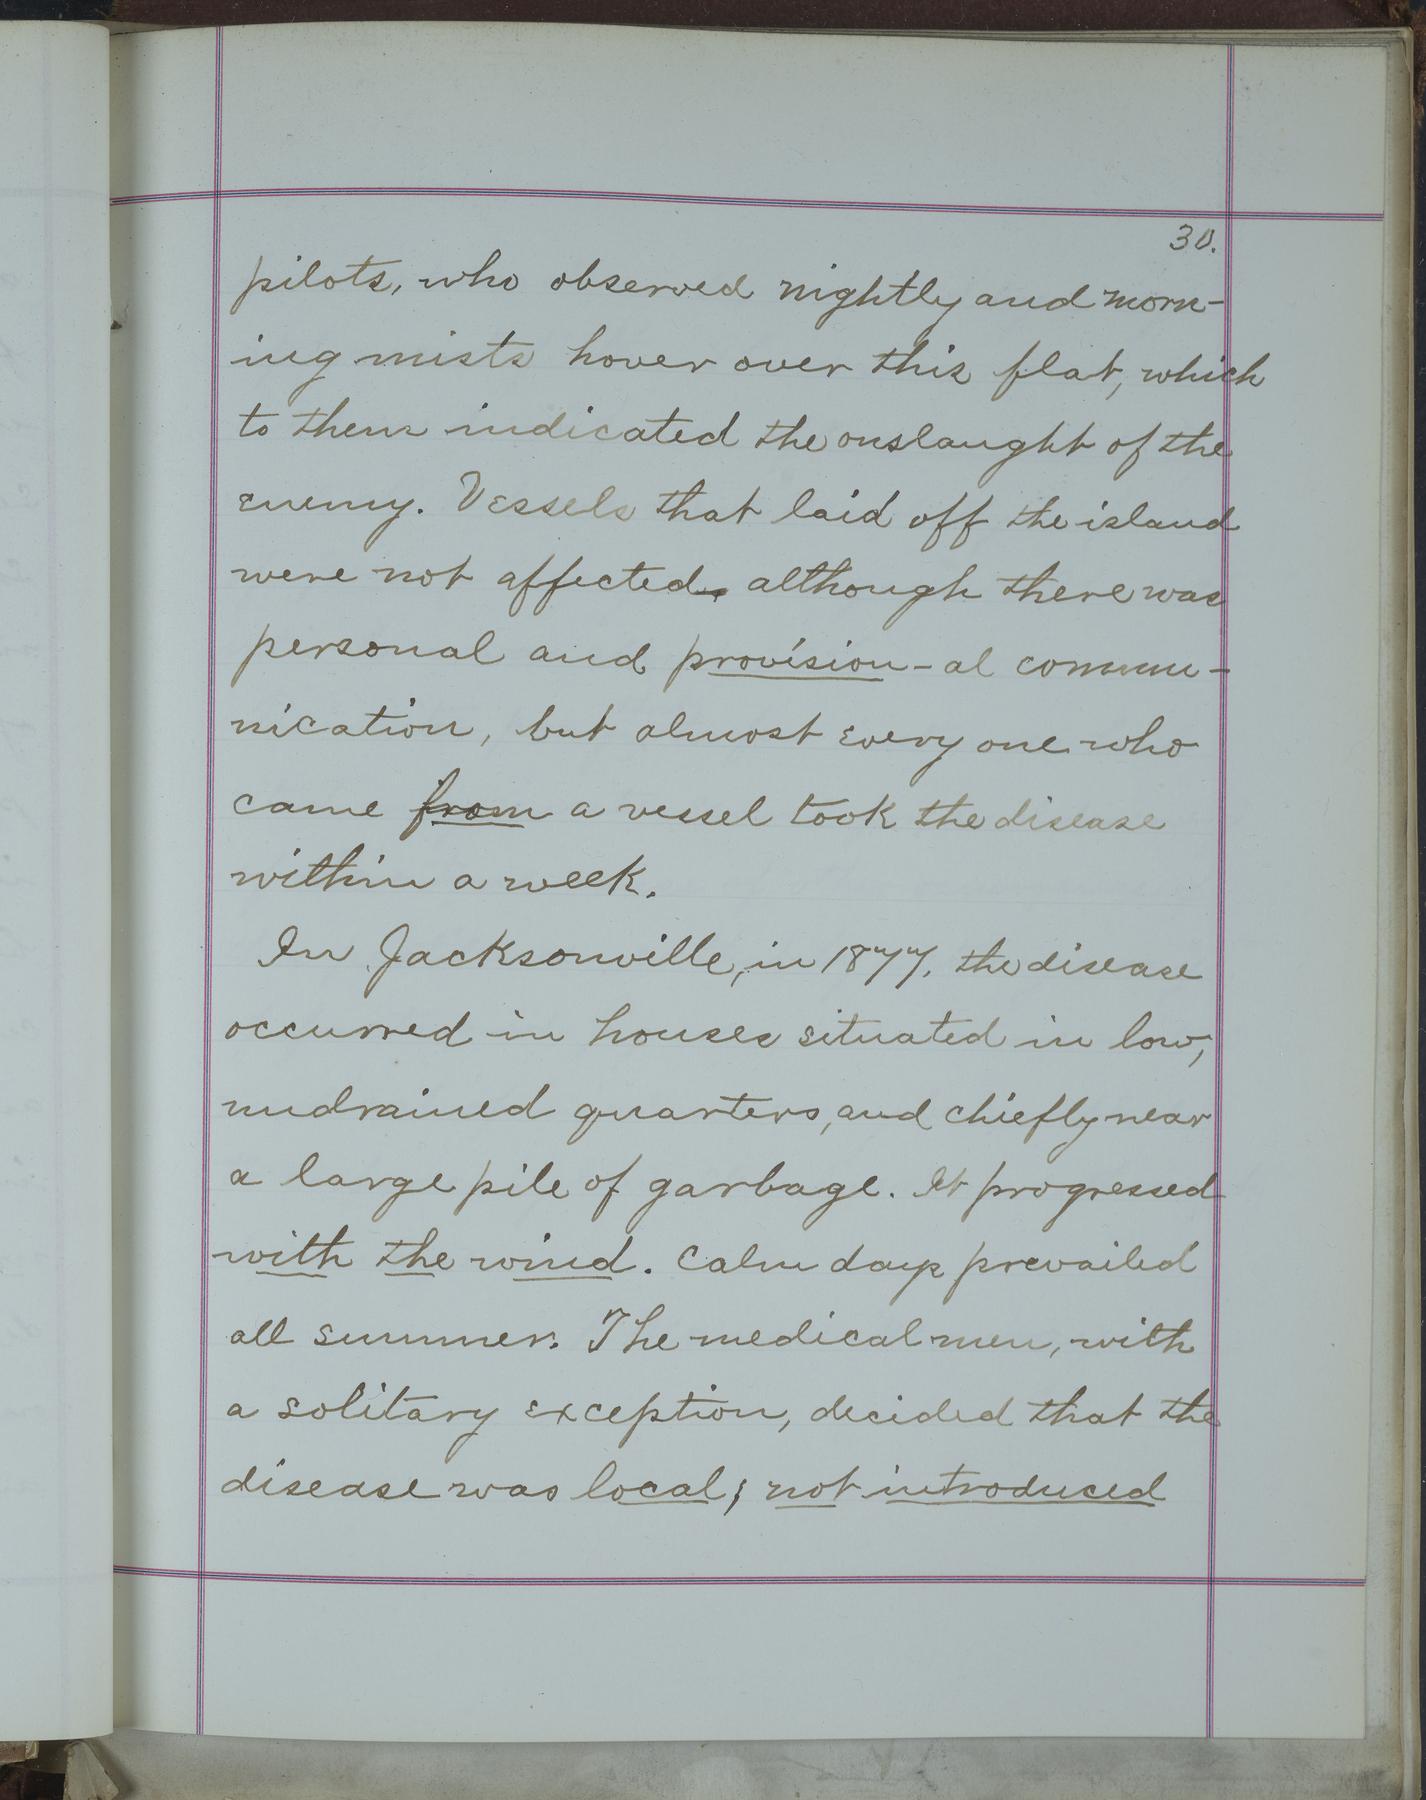 30.
pilots, who observed nightly and morn-
ing mists hover over this flat, which
to them indicated the onslaught of the
enemy. Vessels that laid off the island
were not affected, although there was
personal and provision-al commu-
nication, but almost every one who
came from a vessel took the disease
within a week.
In Jacksonville, in 1877, the disease
occurred in houses situated in low,
undrained quarters, and chiefly near
a large pile of garbage. It progressed
with the wind. Calm days prevailed
all summer. The medical men, with
a solitary exception, decided that the
disease was local; not introduced